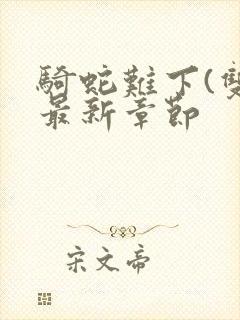 騎蛇難下(雙
最新章節
宋文帝